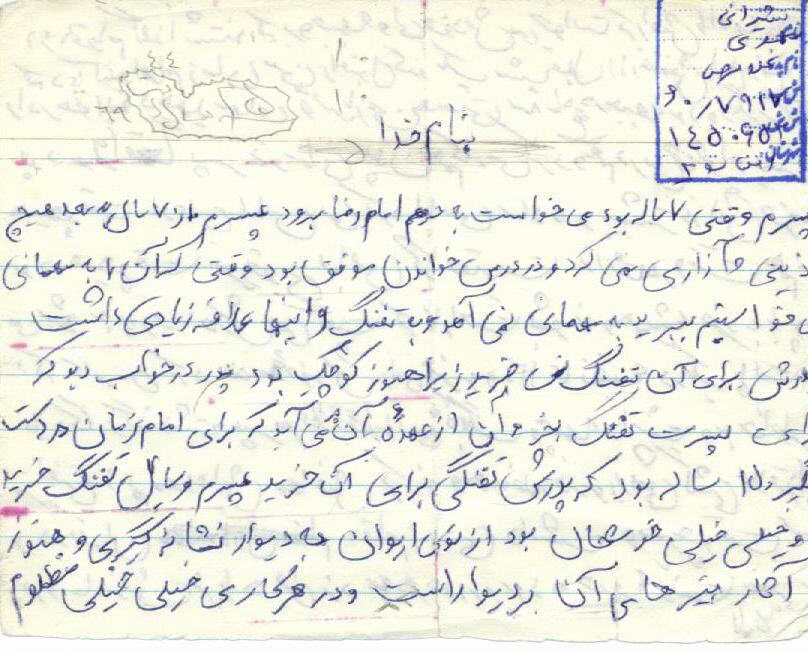 شیرانی
۶۰۸۷۹۱۷
۱۴۵۰۹۵۲
۱۵ سال
بنام خدا
پسرم وقتی ۷ ساله بود می خواست به حرم امام رضا برود پسرم از ۷ سال به بعد هیچ
اذیتی و آزاری نمی کرد و در درس خواندن موفق بود وقتی که آن را به مهمانی
می خواستیم ببریم به مهمانی نمی آمد و به تفنگ و اینها علاقه زیادی داشت
پدرش برای آن تفنگ نمی خرید زیرا هنوز کوچک بود پدر در خواب دید که
برای پسرت تفنگ بخر و آن از عهدهٔ آن می آید که برای امام زمان در دست
بگیرد ۱۵ ساله بود که پدرش تفنگی برای آن خرید پسرم وسایل تفنگ خرید
و خیلی خیلی خوشحال بود از توی ایوان به دیوار نشانه گیری و هنوز
آثار تیرهای آن بر دیوار است و در هر کاری خیلی خیلی مظلوم